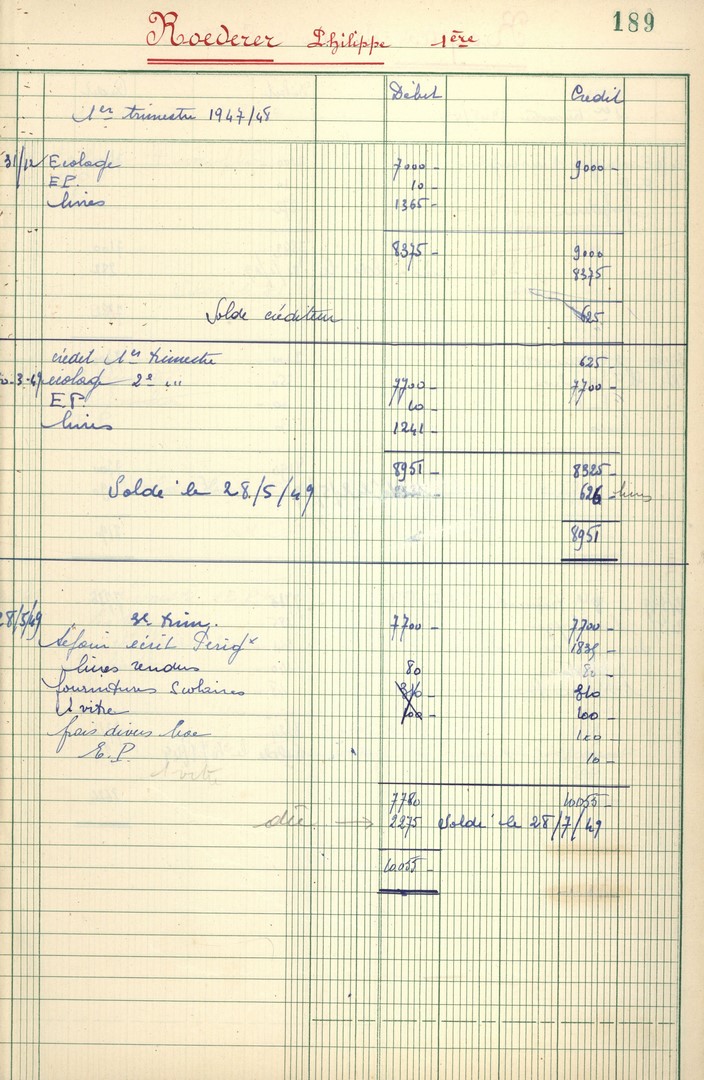 189
Roederer Philippe 1ère
Débit Crédit
1er trimestre 1947/48
31/12 Ecolage 7000 - 9000 -
E.P. 10 -
livres 1365 -
8375 - 9000
8375
Solde créditeur 625
crédit 1er trimestre 625 -
ecolage 2e " 7700 - 7700 -
EP 10 -
livres 1241 -
8951 - 8325 -
Solde le 28/5/49 626 - livres
8951
28/5/49 3e trim. 7700 - 7700 -
écrit
livres rendus 80
fournitures Scolaires 310 - 310
1 vitre 100 - 100 -
frais divers bac 100 -
E.P. 10 -
1 vitre
7780 10055 -
dû → 2275 Solde le 28/7/49
10055 -